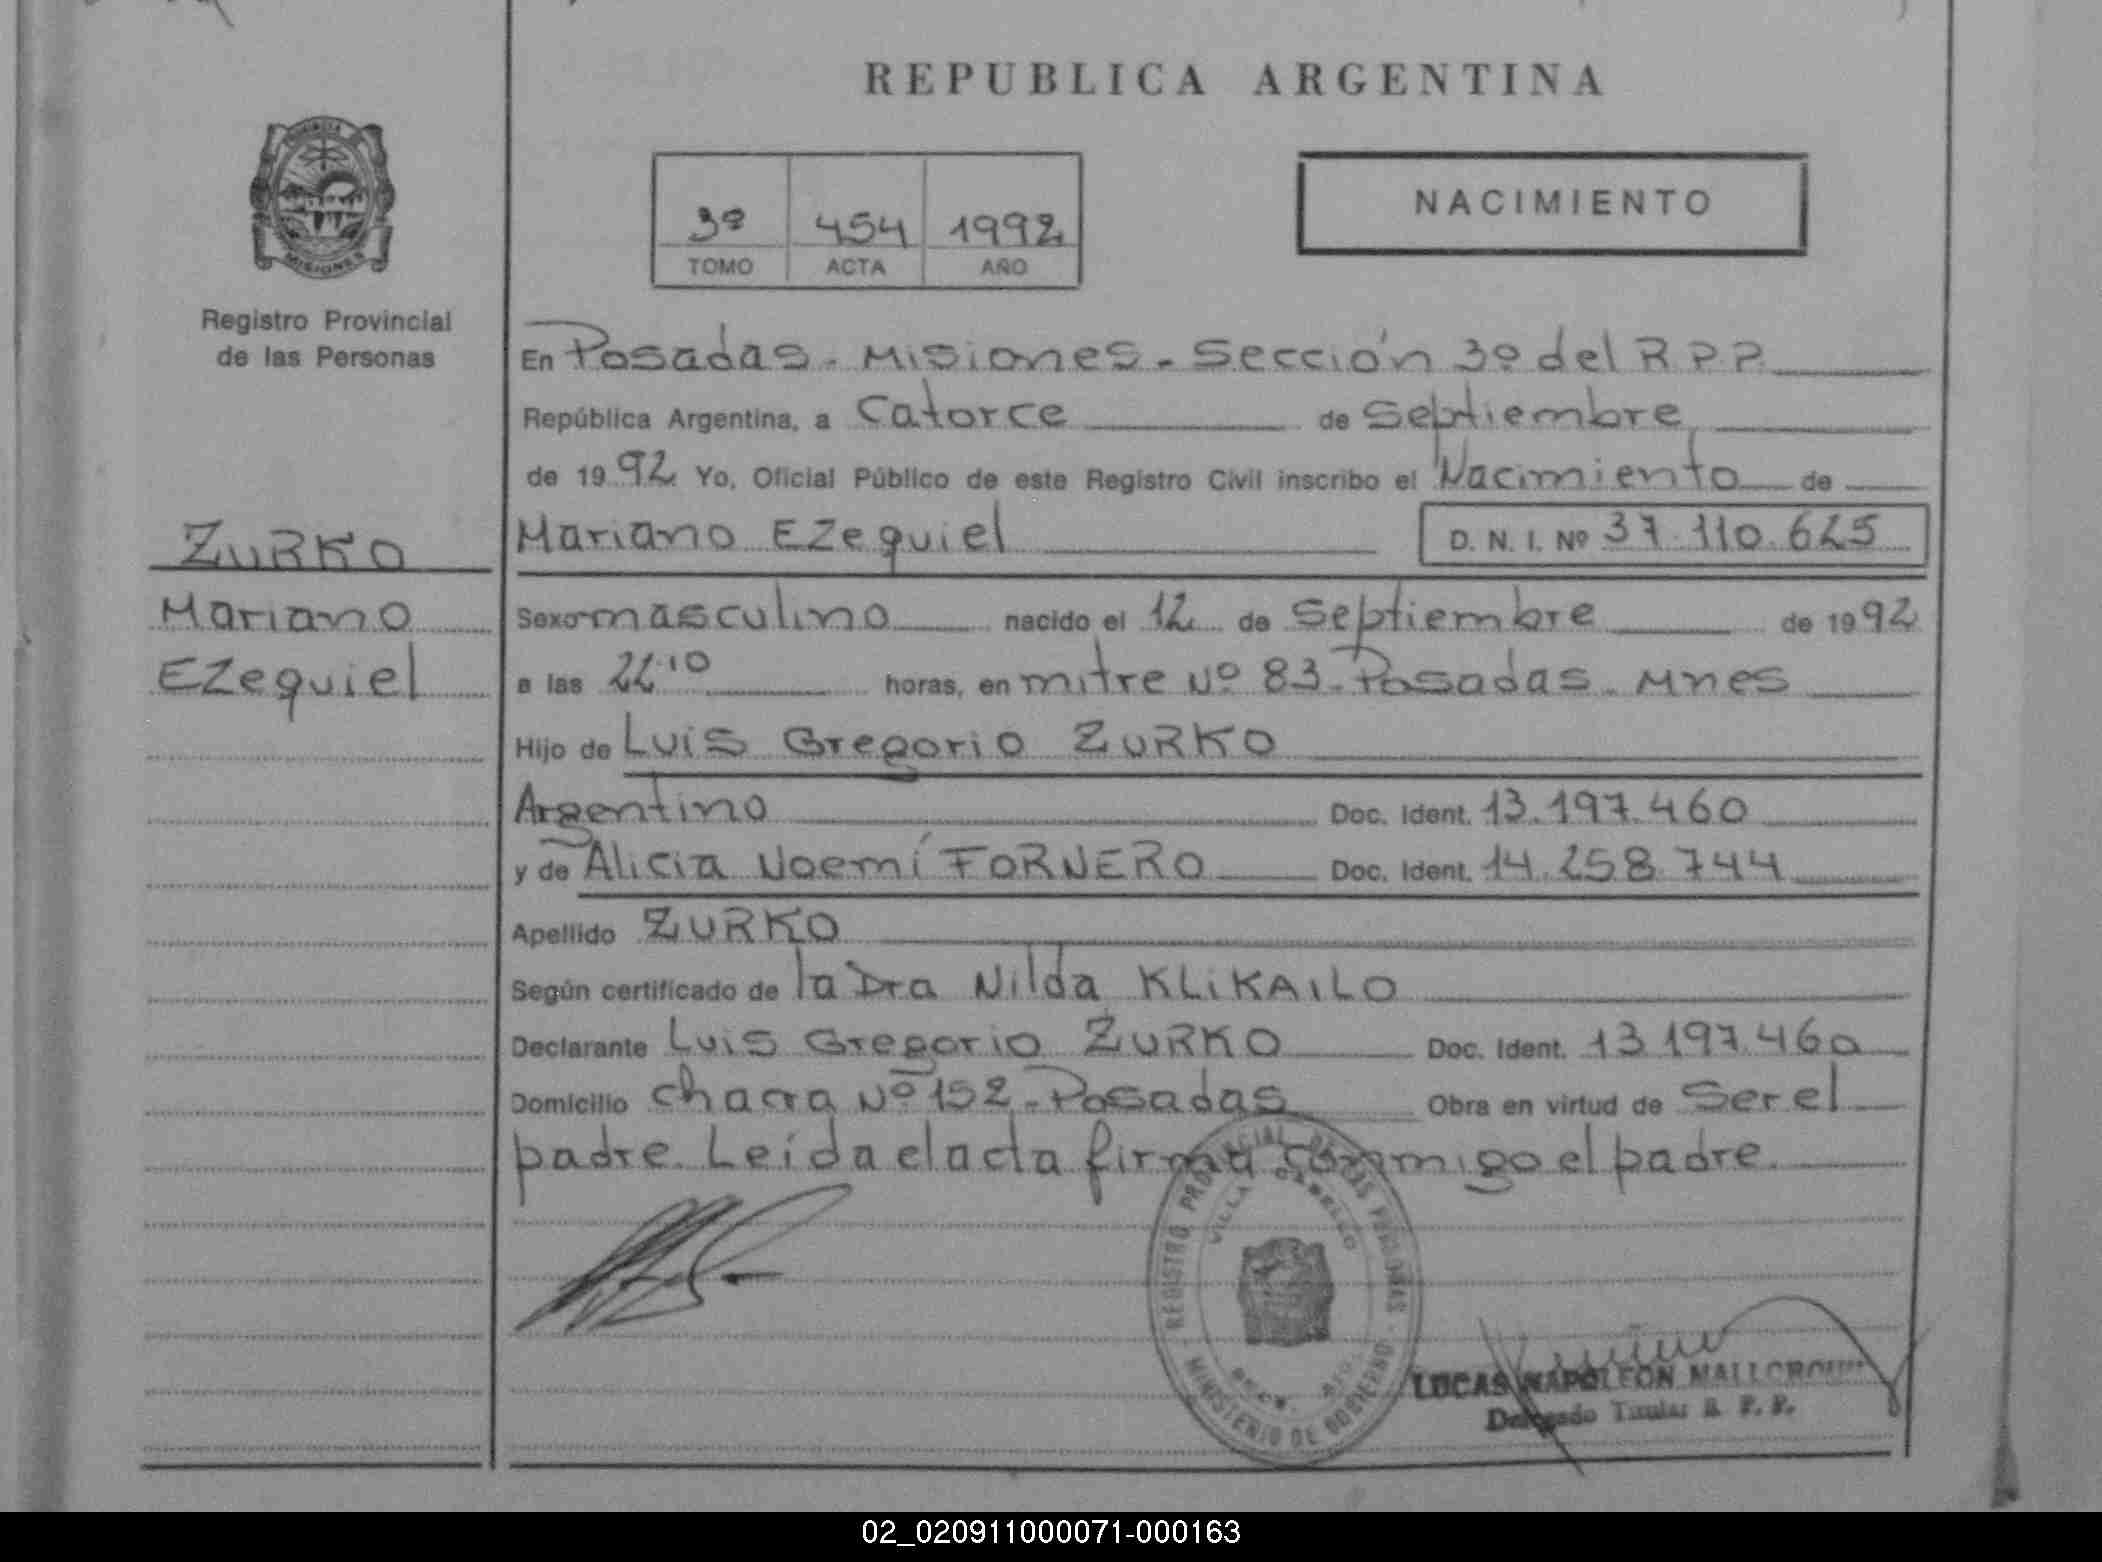 REPUBLICA ARGENTINA
PROVINCIA
MISIONES
Registro Provincial
de las Personas
3º 454 1992
TOMO ACTA AÑO
NACIMIENTO
En Posadas - Misiones - Sección 3º del R.P.P.
República Argentina, a Catorce de Septiembre
de 1992 Yo, Oficial Público de este Registro Civil inscribo el Nacimiento de
Mariano EZequiel D. N. I. Nº 37.110.625
ZURKO
Mariano
EZequiel
Sexo masculino nacido el 12 de Septiembre de 1992
a las 22:10 horas, en mitre Nº 83 - Posadas - Mnes
Hijo de Luis Gregorio ZURKO
Argentino Doc. Ident. 13.197.460
y de Alicia Noemí FORNERO Doc. Ident. 14.258.744
Apellido ZURKO
Según certificado de la Dra Nilda KLiKAILO
Declarante Luis Gregorio ZURKO Doc. Ident. 13.197.460
Domicilio chacra Nº 152 - Posadas Obra en virtud de Ser el
padre. Leída el acta firma conmigo el padre.
REGISTRO PROVINCIAL DE LAS PERSONAS
VILLA CABELLO
MINISTERIO DE GOBIERNO
LUCAS NAPOLEON
Delegado Titular R. P. P.
02_020911000071-000163